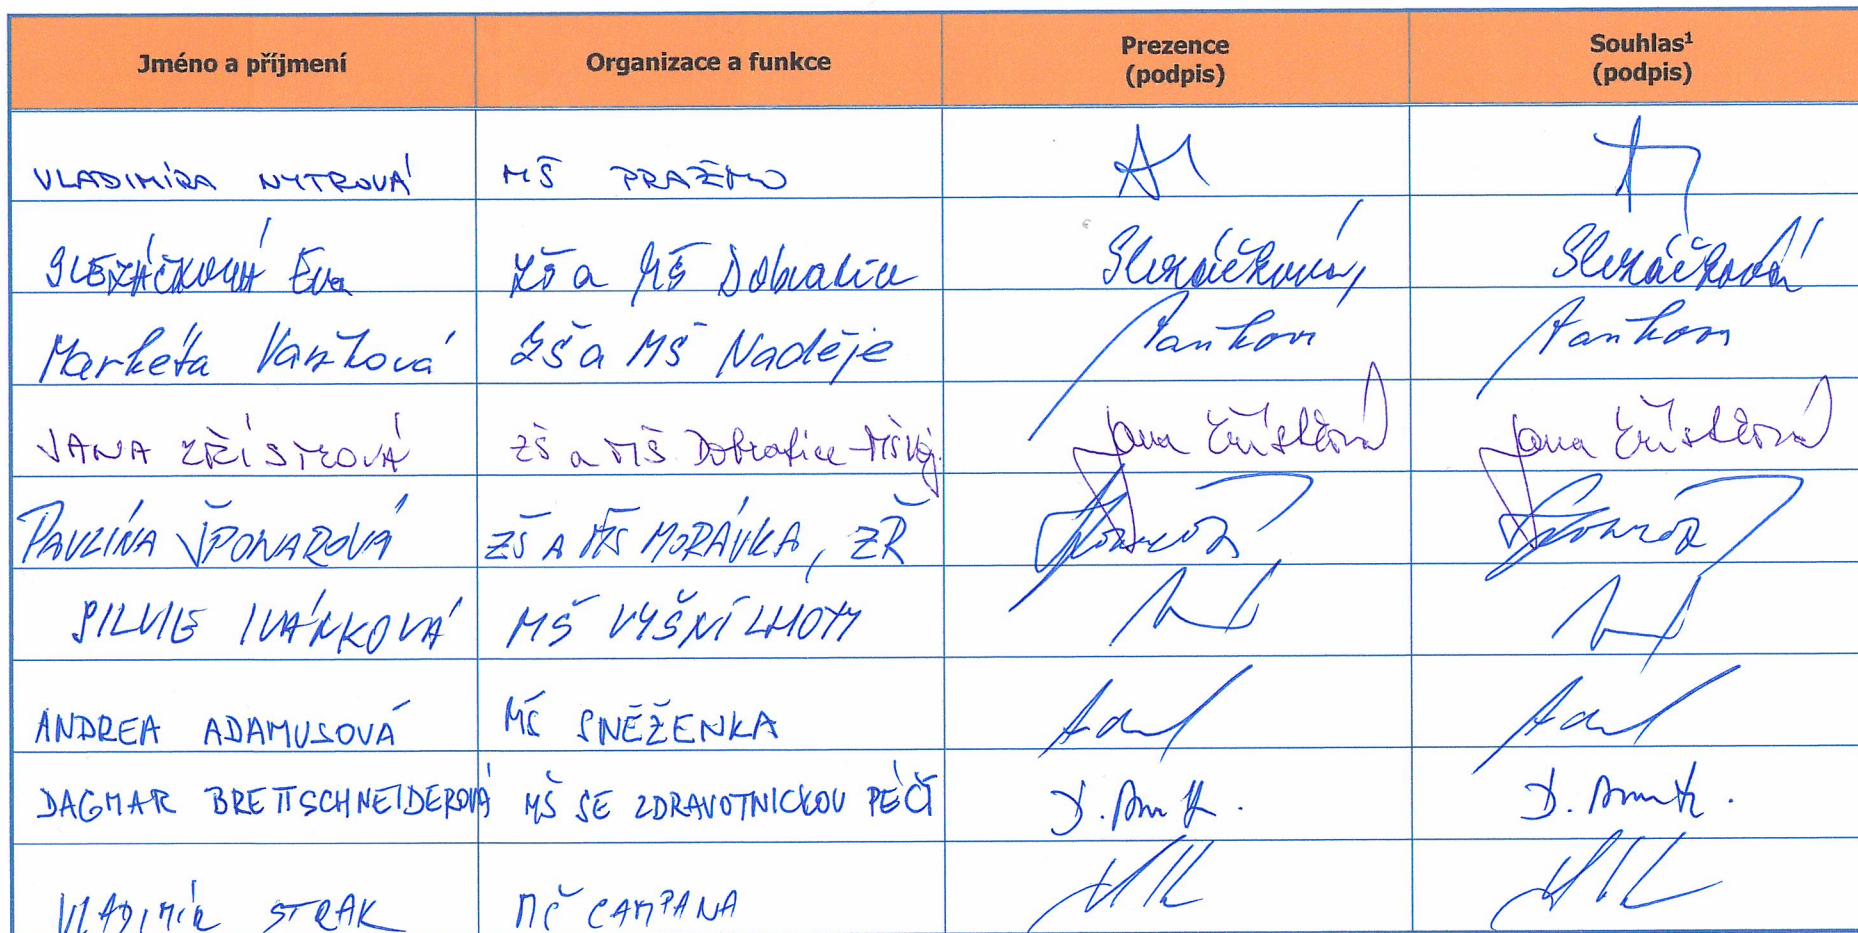 Jméno a příjmení Organizace a funkce Prezence (podpis) Souhlas¹ (podpis)
VLADIMÍRA NYTROVÁ MŠ PRAŽMO
SLEZÁČKOVÁ Eva ZŠ a MŠ Dobratice Slezáčková Slezáčková
Markéta Vaňková ZŠ a MŠ Naděje Vaňková Vaňková
JANA ZŘÍSTKOVÁ ZŠ a MŠ Dobratice Jana Jana
PAVLÍNA ŠPONAROVÁ ZŠ A MŠ MORÁVKA, ZŘ
SILVIE IVÁNKOVÁ MŠ VYŠNÍ LHOTY
ANDREA ADAMUSOVÁ MŠ SNĚŽENKA
DAGMAR BRETTSCHNEIDEROVÁ MŠ SE ZDRAVOTNICKOU PÉČÍ
VLADIMÍR STRAK MŠ CAMPANA